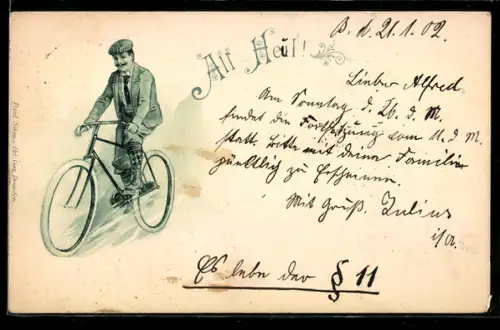 B. d. 21.1.02.
All Heil!
Lieber Alfred.
Am Sonntag d. 26. d. M.
findet die Fortsetzung vom 11. d. M.
statt. Bitte mit deiner Familie
pünktlich zu Erscheinen.
Mit Gruß. Julius
Es lebe der § 11